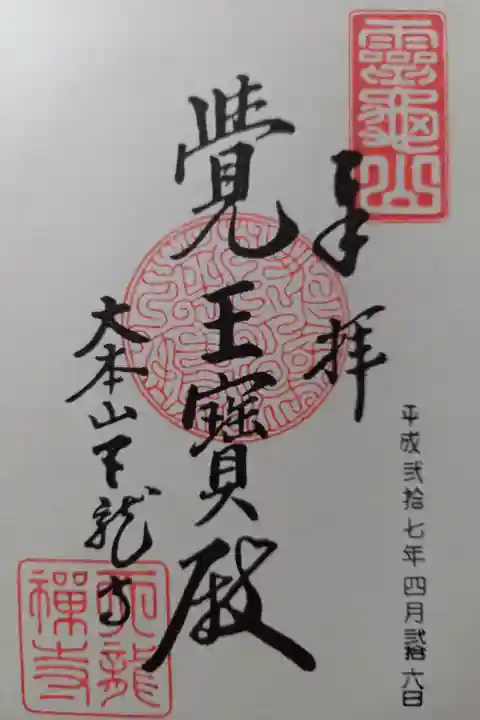 靈龜山
奉拝
平成弐拾七年四月弐拾六日
覺王寳殿
大本山天龍寺
天龍禪寺